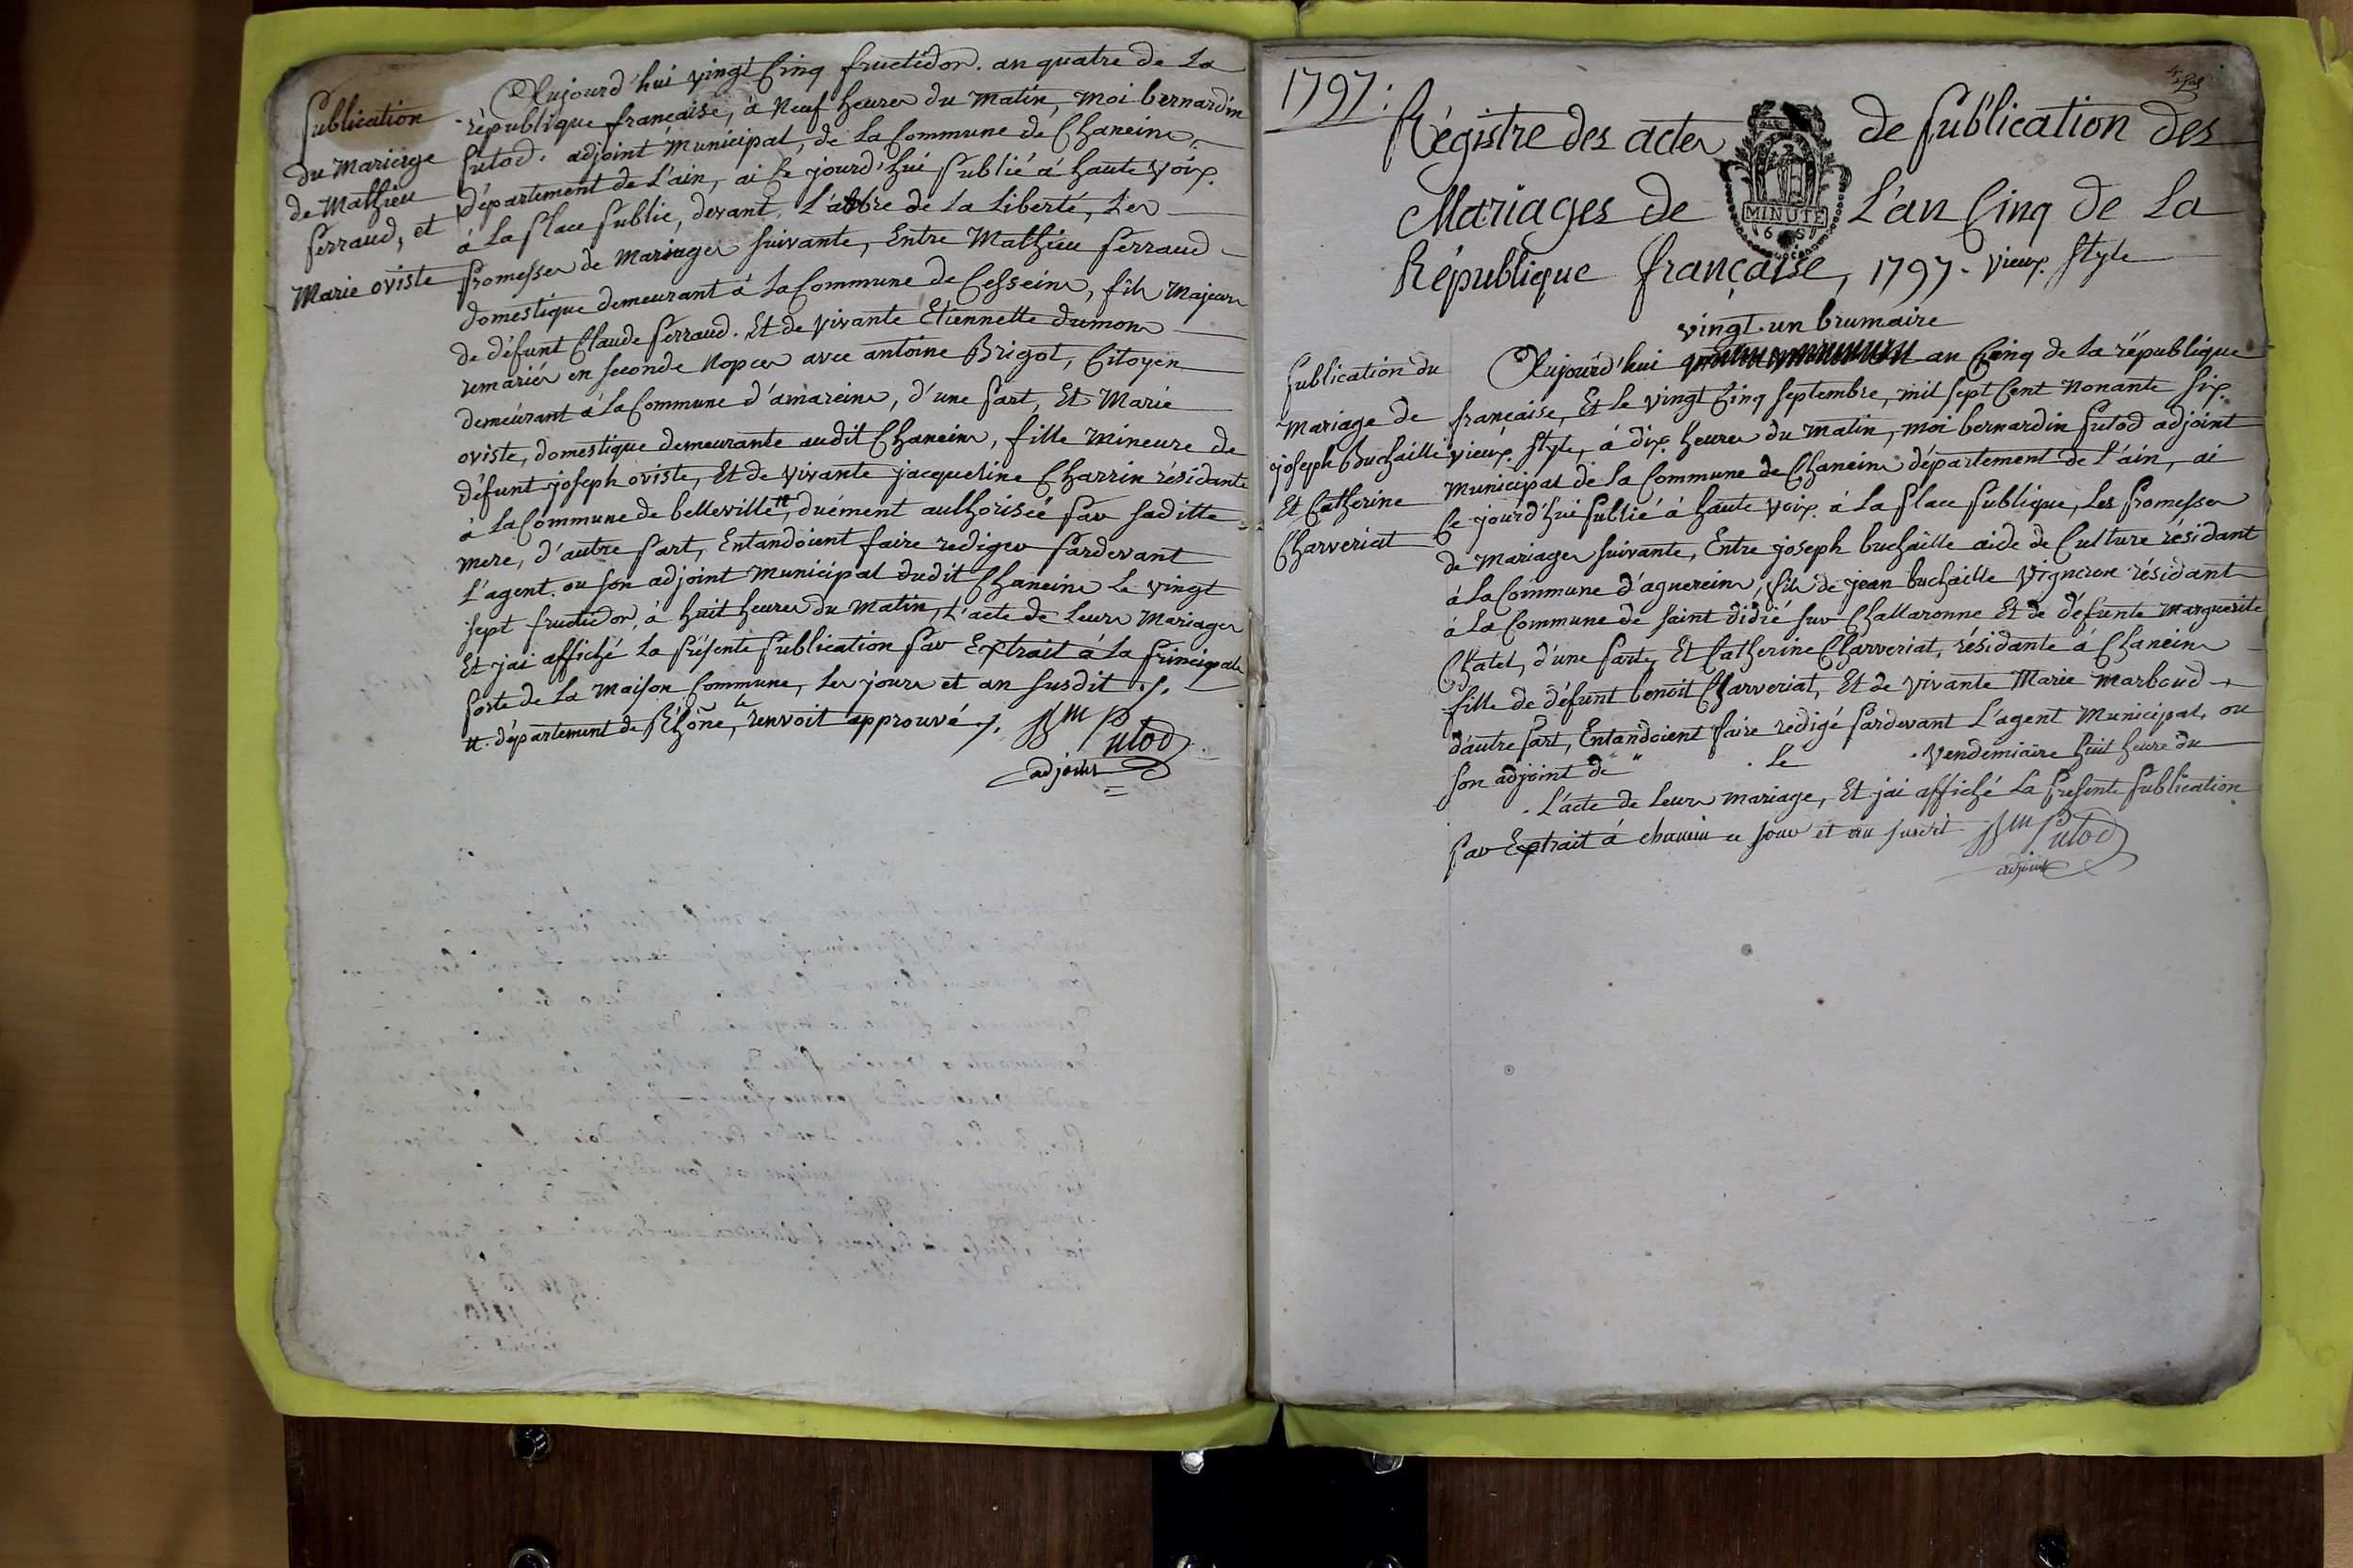 Publication
du Mariage
de Mathieu
Perraud, et
Marie oviste
Aujourd'hui vingt Cinq fructidor. an quatre de La
république francaise, à Neuf heures du Matin, moi bernardin
Putod. adjoint Municipal, de La Commune de Chaneins,
département de L'ain, ai Ce jourd'hui Publié à haute voix.
à La place Public, devant L'arbre de La Liberté, Les
Promesses de Mariages suivante, Entre Mathieu Perraud
domestique demeurant à La Commune de Cesseins, fils Majeurs
de défunt Claude Perraud. Et de vivante Etiennette dumons
remariés en seconde Nopces avec antoine Brigot, Citoyen
demeurant à La Commune d'amareins, d'une Part, Et Marie
oviste, domestique demeurante audit Chaneins, fille Mineure de
défunt joseph oviste, Et de vivante jacqueline Charrin résidante
à La Commune de belleville #, duément authorisée Par saditte
mere, d'autre Part, Entandoient faire rediger Pardevant
L'agent. ou son adjoint Municipal dudit Chaneins Le vingt
sept fructidor, à huit heures du Matin, L'acte de Leurs Mariages
Et jai affiché La Présente Publication Par Extrait à La Principale
Porte de La Maison Commune, Les jours et an susdit ./.
#. département de Rhône, le renvoit approuvé ./.
Putod
adjoint
1797:
Régistre des actes de Publication des
Mariages de L'an Cinq de La
MINUTE
République française, 1797. vieux Style
Publication du
Mariage de
joseph Buchaille
Et Catherine
Charveriat
vingt-un brumaire
Aujourd'hui an Cinq de La république
francaise, Et Le vingt Cinq septembre, mil sept Cent Nonante Six
vieux Style, à dix heures du Matin, moi bernardin Putod adjoint
Municipal de La Commune de Chaneins département de L'ain, ai
Ce jourd'hui Publié à haute voix. à La Place Publique, Les Promesses
de Mariages suivante, Entre joseph buchaille aide de Culture résidant
à La Commune d'aguereins, fils de jean buchaille Vigneron résidant
à La Commune de Saint didié sur Challaronne Et de défunte Marguerite
Chatel, d'une Parte, Et Catherine Charveriat, résidante à Chaneins
fille de défunt benoît Charveriat, Et de vivante Marie Marboud
d'autre Part, Entandoient faire redigé Pardevant L'agent Municipal, ou
son adjoint de " . Le . Vendemiaire huit heure du
. L'acte de Leurs mariage, Et jai affiché La Presente Publication
Par Extrait à chanein ce jour et an susdit Putod
adjoint